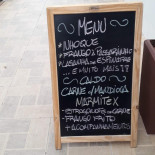 ~ MENU ~
* NHOQUE
* FRANGO A PASSARINHO
* LASANHA DE ESPINAFRE
... E MUITO MAIS!!
~ CALDO ~
CARNE / MANDIOCA
MARMITEX
* ESTROGONOFE DE CARNE
* FRANGO FEITO
+ ACOMPANHAMENTO